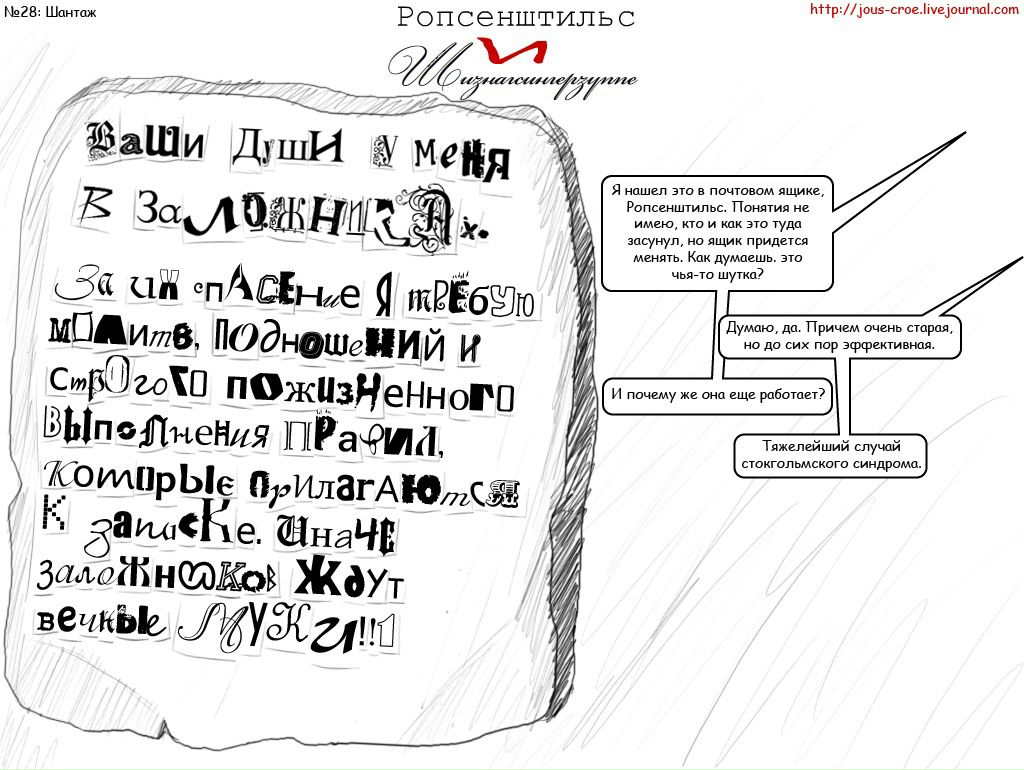 №28: Шантаж
Ропсенштильс
И
Шизнагсингерзуппе
http://jous-croe.livejournal.com
Ваши Души у меня
В Заложниках.
За их спасение я требую
молитв, подношений и
строгого пожизненного
выполнения Правил,
которые прилагаются
К записке. Иначе
заложников ждут
вечные муки!!1
Я нашел это в почтовом ящике,
Ропсенштильс. Понятия не
имею, кто и как это туда
засунул, но ящик придется
менять. Как думаешь. это
чья-то шутка?
Думаю, да. Причем очень старая,
но до сих пор эффективная.
И почему же она еще работает?
Тяжелейший случай
стокгольмского синдрома.